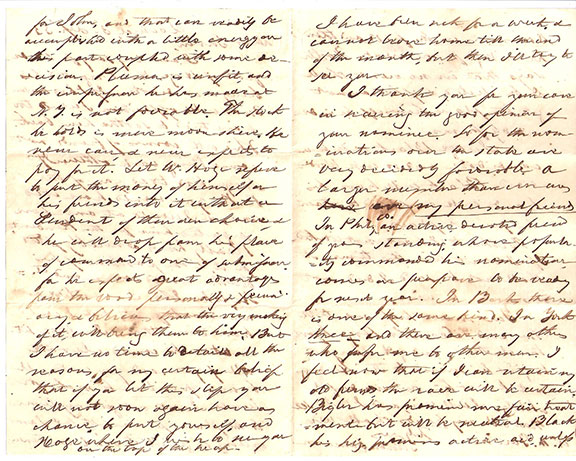 for John, and that can readily be
accomplished with a little energy on
his part coupled with some de-
cision. Plumer is unfit and
the impression he has made at
N. Y. is not favorable. The stock
he holds is mere moon shine. He
never can & never expects to
pay for it. Let Mr. Hoge refuse
to put the money of himself or
his friends into it without a
President of their own choice &
he will drop from his place
of command to one of submission
for he expects great advantages
from the road personally &
& I believe that the very making
of it, will bring them to him. But
I have no time to detail all the
reasons, for my certain belief
that if you let this slip you
will not soon again have as
chance to put yourself and
Hoge where I wish to see you
on the top of the heap.
I have been sick for a week &
cannot leave home till the end
of the month, but then I'll try to
see you.
I thank you for your care
in the good opinion of
your nominee. So far the nom-
inations over the state are
very decidedly favorable. A
larger number than ever are
my personal friends
In Phil. Co. an active devoted friend
of yours standing whose popular-
ity commanded his nomination
comes on purpose to be ready
for next year. In Berks there
is one of the same kind. In York
three, and there are many others
who prefer me to other men. I
feel now that if I can retain my
old friends the race will be certain.
Bigler has promised me fair treat-
ment but will be neutral. Black
his promises active aid